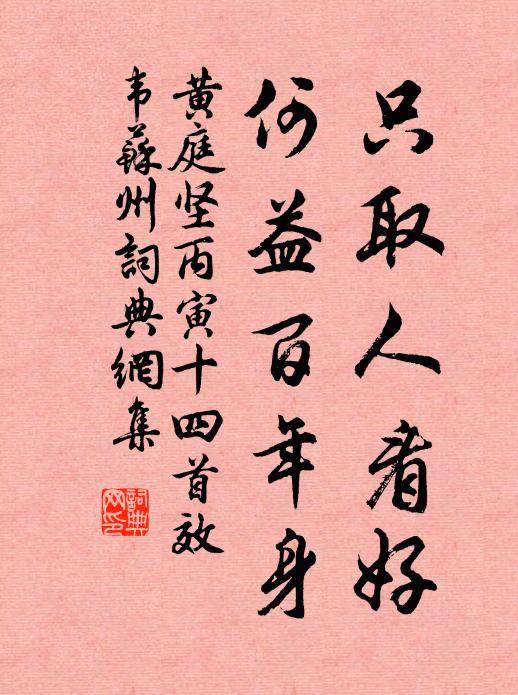 只取人看好
何益百年身
黄庭坚丙寅十四首效
韦蘇州詞典網集
詞典
网印